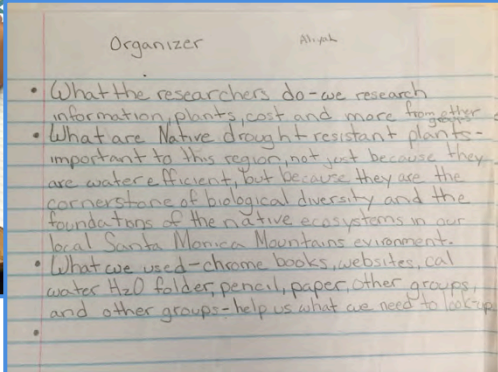 Organizer Aliyah
• What the researchers do - we research
information, plants, cost and more from other
• What are Native drought resistant plants -
important to this region, not just because they
are water efficient, but because they are the
cornerstone of biological diversity and the
foundations of the native ecosystems in our
local Santa Monica Mountains evironment.
• What we used - chrome books, websites, cal
water H2O folder, pencil, paper, other groups,
and other groups - help us what we need to look up.
•